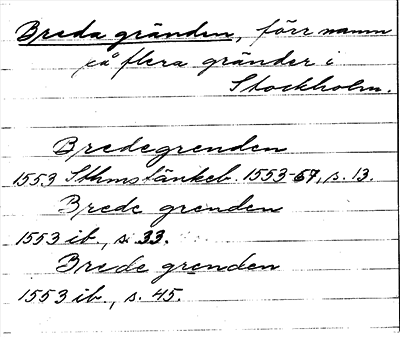 Breda gränden, förr namn
på flera gränder i
Stockholm.
Bredegrenden
1553 Sthms tänkeb. 1553-67, s. 13.
Brede grenden
1553 ib., s. 33.
Brede grenden
1553 ib., s. 45.